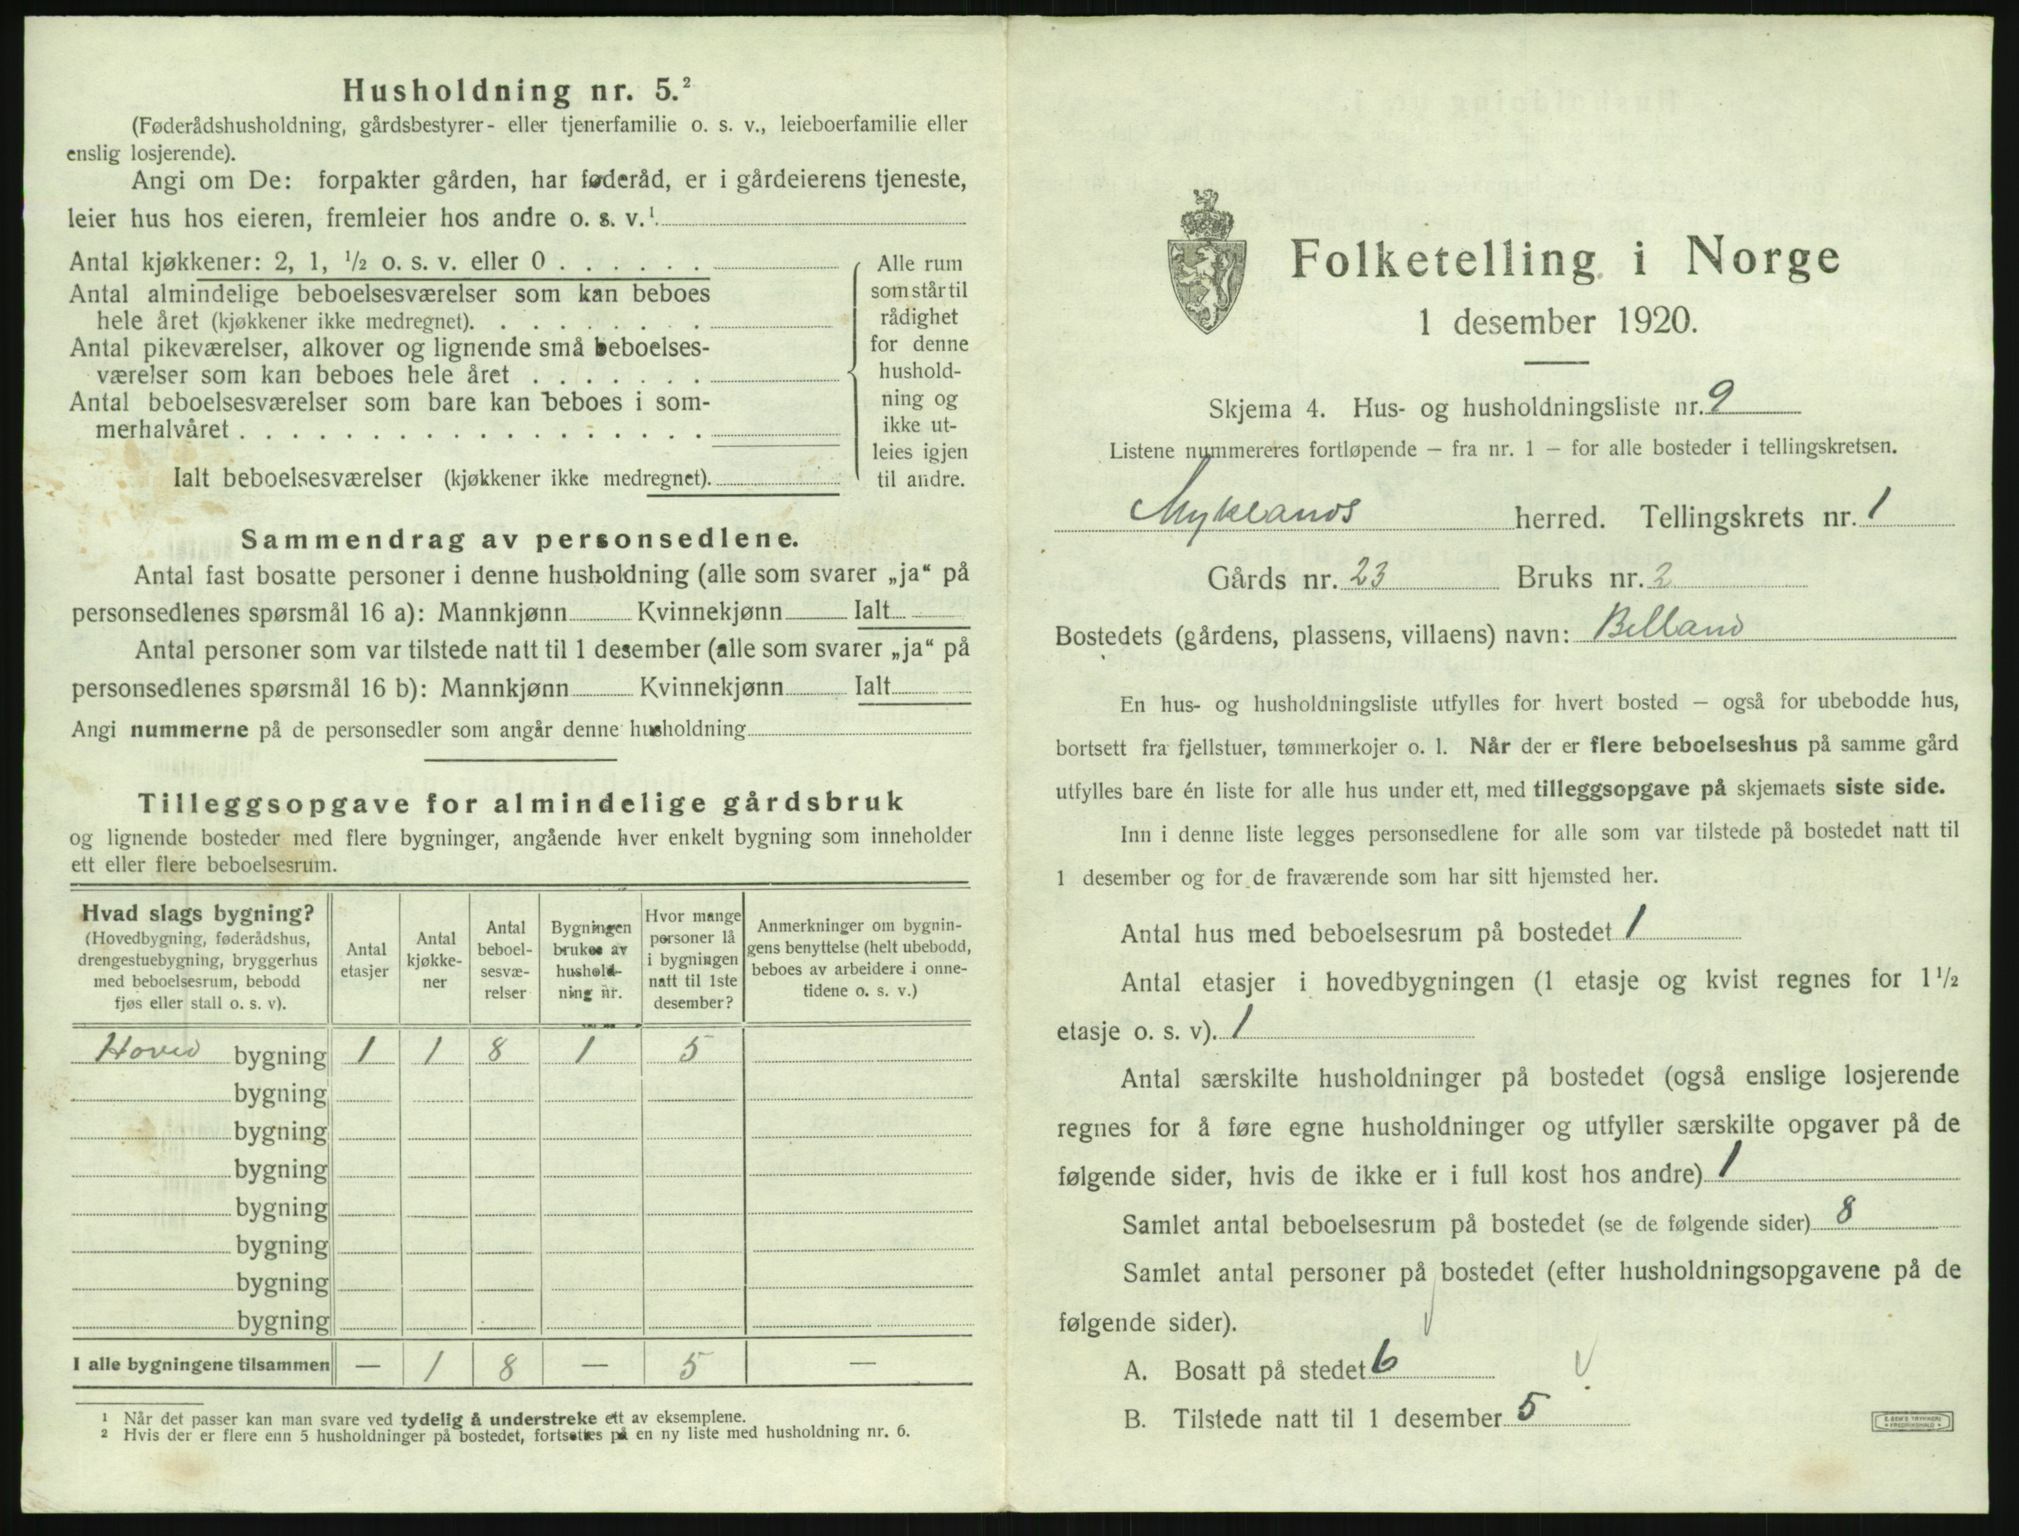 Husholdning nr. 5.²
(Føderådshusholdning, gårdsbestyrer- eller tjenerfamilie o. s. v., leieboerfamilie eller
enslig losjerende).
Angi om De: forpakter gården, har føderåd, er i gårdeierens tjeneste,
leier hus hos eieren, fremleier hos andre o. s. v.¹
Antal kjøkkener: 2, 1, ½ o. s. v. eller 0 . . . . . .
Antal almindelige beboelsesværelser som kan beboes
hele året (kjøkkener ikke medregnet). . . . . . . . .
Antal pikeværelser, alkover og lignende små beboelses-
værelser som kan beboes hele året . . . . . . .
Antal beboelsesværelser som bare kan beboes i som-
merhalvåret . . . . . . . . . . . . . . . . . .
Ialt beboelsesværelser (kjøkkener ikke medregnet).
Alle rum
som står til
rådighet
for denne
hushold-
ning og
ikke ut-
leies igjen
til andre.
Sammendrag av personsedlene.
Antal fast bosatte personer i denne husholdning (alle som svarer „ja“ på
personsedlenes spørsmål 16 a): Mannkjønn Kvinnekjønn Ialt
Antal personer som var tilstede natt til 1 desember (alle som svarer „ja“ på
personsedlenes spørsmål 16 b): Mannkjønn Kvinnekjønn Ialt
Angi nummerne på de personsedler som angår denne husholdning
Tilleggsopgave for almindelige gårdsbruk
og lignende bosteder med flere bygninger, angående hver enkelt bygning som inneholder
ett eller flere beboelsesrum.
Hvad slags bygning?
(Hovedbygning, føderådshus,
drengestuebygning, bryggerhus
med beboelsesrum, bebodd
fjøs eller stall o. s. v).
Antal
etasjer
Antal
kjøkke-
ner
Antal
beboel-
sesvæ-
relser
Bygningen
brukes av
hushold-
ning nr.
Hvor mange
personer lå
i bygningen
natt til 1ste
desember?
Anmerkninger om bygnin-
gens benyttelse (helt ubebodd,
beboes av arbeidere i onne-
tidene o. s. v.)
Hoved bygning 1 1 8 1 5
bygning
bygning
bygning
bygning
bygning
bygning
bygning
I alle bygningene tilsammen — 1 8 — 5 —
¹ Når det passer kan man svare ved tydelig å understreke ett av eksemplene.
² Hvis der er flere enn 5 husholdninger på bostedet, fortsettes på en ny liste med husholdning nr. 6.
Folketelling i Norge
1 desember 1920.
Skjema 4. Hus- og husholdningsliste nr. 9
Listene nummereres fortløpende – fra nr. 1 – for alle bosteder i tellingskretsen.
Myklands herred. Tellingskrets nr. 1
Gårds nr. 23 Bruks nr. 2
Bostedets (gårdens, plassens, villaens) navn: Belland
En hus- og husholdningsliste utfylles for hvert bosted – også for ubebodde hus,
bortsett fra fjellstuer, tømmerkojer o. l. Når der er flere beboelseshus på samme gård
utfylles bare én liste for alle hus under ett, med tilleggsopgave på skjemaets siste side.
Inn i denne liste legges personsedlene for alle som var tilstede på bostedet natt til
1 desember og for de fraværende som har sitt hjemsted her.
Antal hus med beboelsesrum på bostedet 1
Antal etasjer i hovedbygningen (1 etasje og kvist regnes for 1½
etasje o. s. v). 1
Antal særskilte husholdninger på bostedet (også enslige losjerende
regnes for å føre egne husholdninger og utfyller særskilte opgaver på de
følgende sider, hvis de ikke er i full kost hos andre) 1
Samlet antal beboelsesrum på bostedet (se de følgende sider) 8
Samlet antal personer på bostedet (efter husholdningsopgavene på de
følgende sider).
A. Bosatt på stedet 6
B. Tilstede natt til 1 desember 5